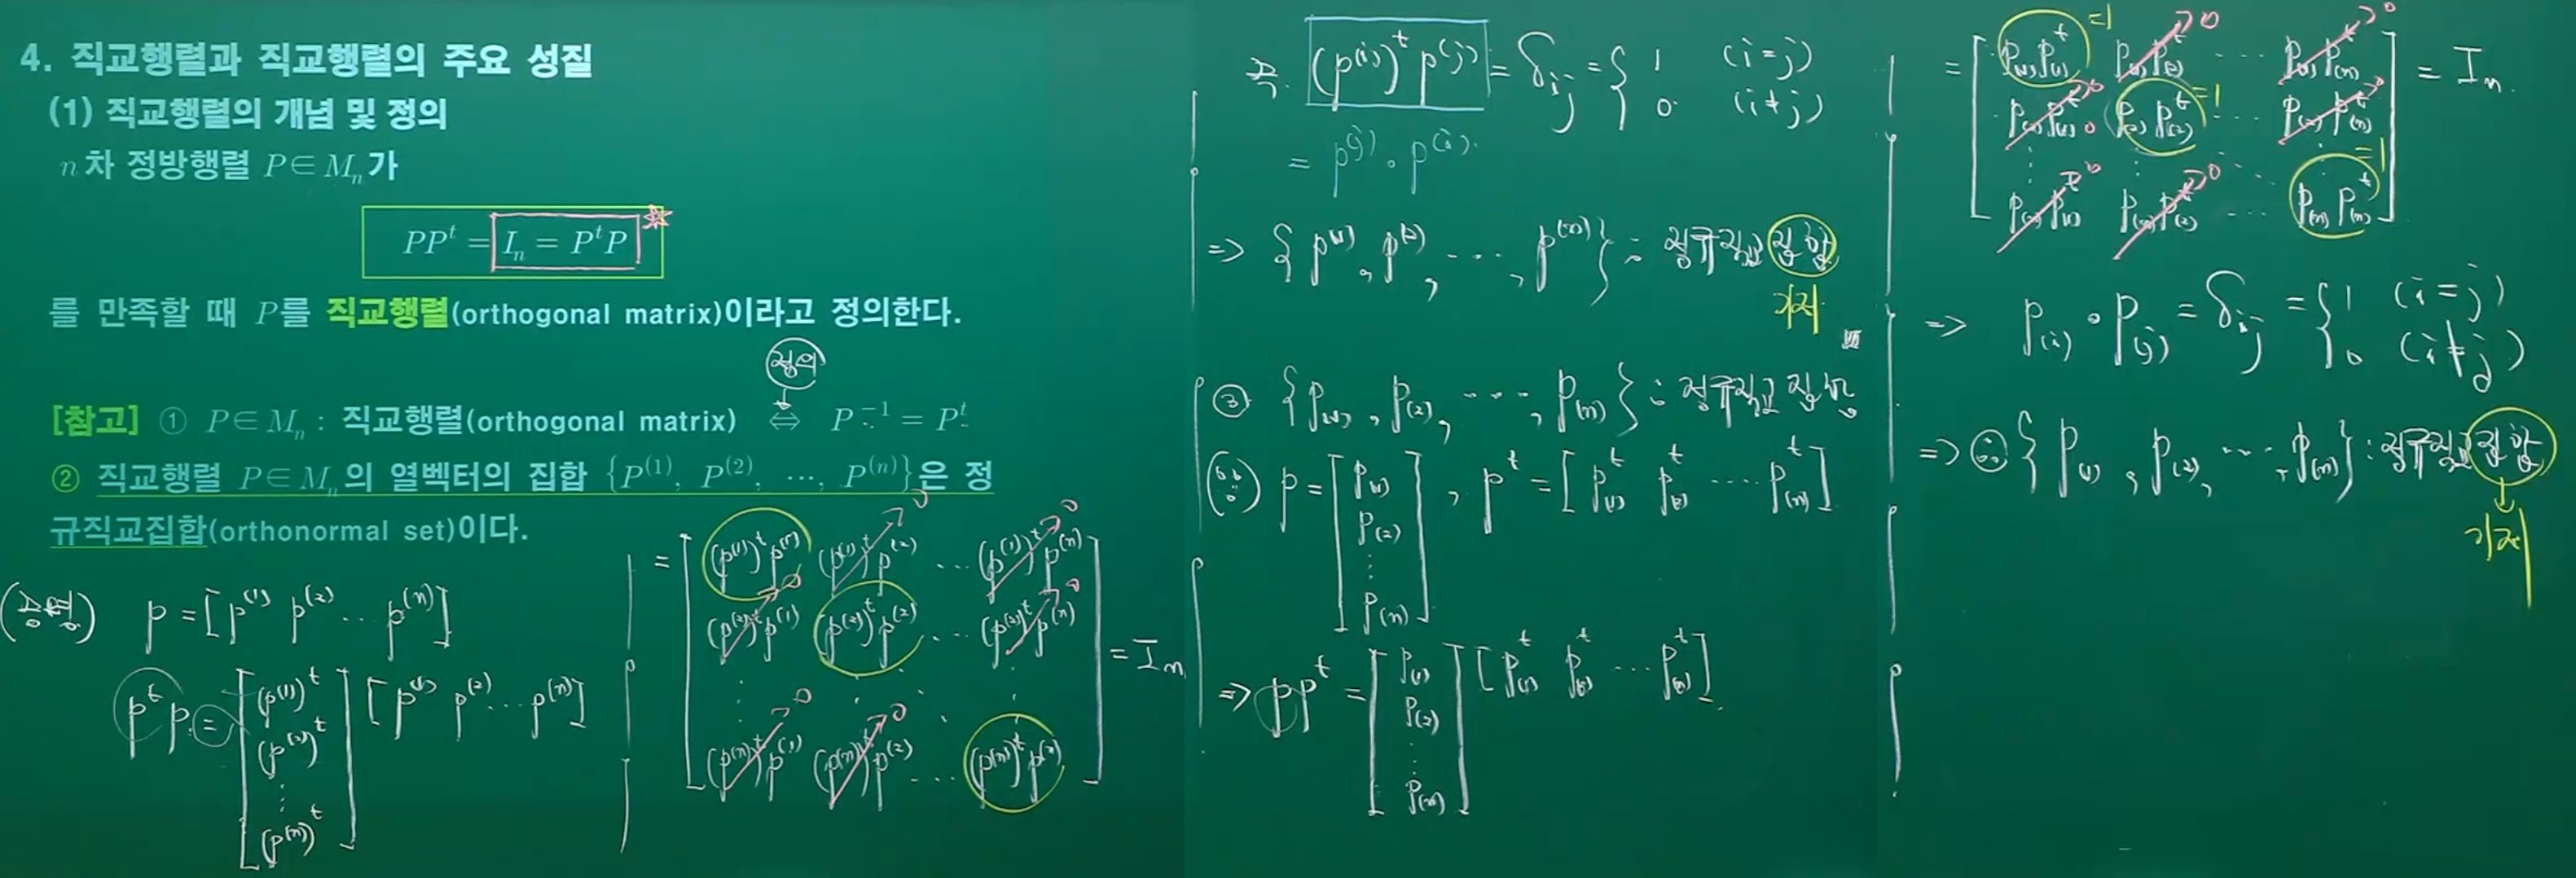 4. 직교행렬과 직교행렬의 주요 성질
(1) 직교행렬의 개념 및 정의
n차 정방행렬 P∈M_n가
PP^t = I_n = P^tP
를 만족할 때 P를 직교행렬(orthogonal matrix)이라고 정의한다.
정의
[참고] ① P∈M_n : 직교행렬(orthogonal matrix) ⇔ P^{-1} = P^t
② 직교행렬 P∈M_n의 열벡터의 집합 {P^{(1)}, P^{(2)}, ⋯, P^{(n)}}은 정
규직교집합(orthonormal set)이다.
(증명) P = [P^{(1)} P^{(2)} ⋯ P^{(n)}]
P^t P = [(P^{(1)})^t
(P^{(2)})^t
⋮
(P^{(n)})^t] [P^{(1)} P^{(2)} ⋯ P^{(n)}]
= [(P^{(1)})^t P^{(1)} (P^{(1)})^t P^{(2)} →0 ⋯ (P^{(1)})^t P^{(n)} →0
(P^{(2)})^t P^{(1)} →0 (P^{(2)})^t P^{(2)} ⋯ (P^{(2)})^t P^{(n)} →0
⋮ ⋮ ⋱ ⋮
(P^{(n)})^t P^{(1)} →0 (P^{(n)})^t P^{(2)} →0 ⋯ (P^{(n)})^t P^{(n)}] = I_n
즉. (P^{(i)})^t P^{(j)} = δ_{ij} = { 1 (i=j)
0 (i≠j)
= P^{(j)} ∘ P^{(i)}
⇒ {P^{(1)}, P^{(2)}, ⋯, P^{(n)}} : 정규직교집합
기저
③ {P_{(1)}, P_{(2)}, ⋯, P_{(n)}} : 정규직교집합
(∵) P = [P_{(1)}
P_{(2)}
⋮
P_{(n)}] , P^t = [P_{(1)}^t P_{(2)}^t ⋯ P_{(n)}^t]
⇒ PP^t = [P_{(1)}
P_{(2)}
⋮
P_{(n)}] [P_{(1)}^t P_{(2)}^t ⋯ P_{(n)}^t]
= [P_{(1)}P_{(1)}^t =1 P_{(1)}P_{(2)}^t →0 ⋯ P_{(1)}P_{(n)}^t →0
P_{(2)}P_{(1)}^t →0 P_{(2)}P_{(2)}^t =1 ⋯ P_{(2)}P_{(n)}^t →0
⋮ ⋮ ⋱ ⋮
P_{(n)}P_{(1)}^t →0 P_{(n)}P_{(2)}^t →0 ⋯ P_{(n)}P_{(n)}^t =1] = I_n
⇒ P_{(i)} ∘ P_{(j)} = δ_{ij} = { 1 (i=j)
0 (i≠j)
⇒ ∴ {P_{(1)}, P_{(2)}, ⋯, P_{(n)}} : 정규직교집합
기저